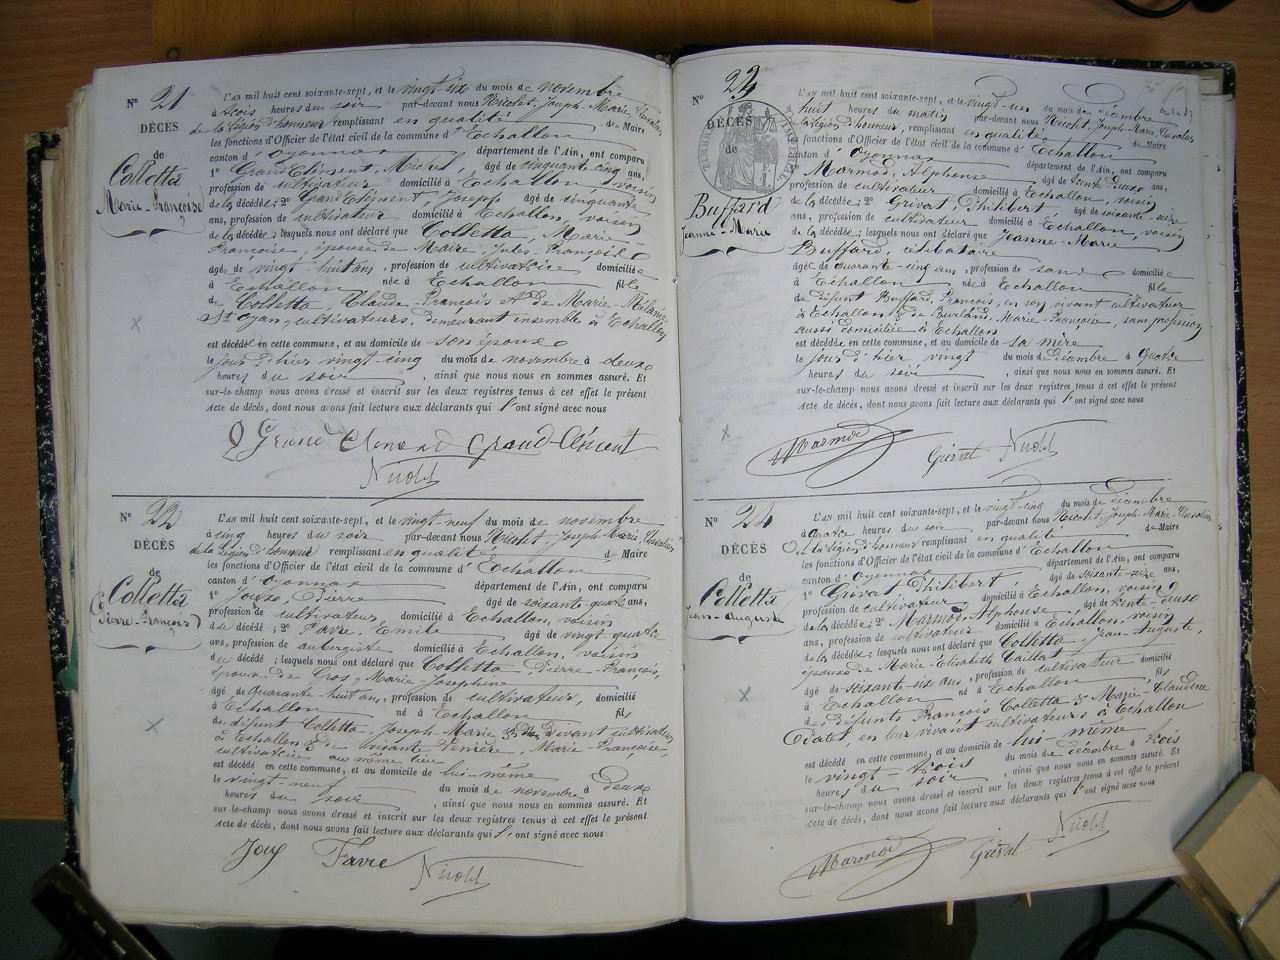 N° 21
DÉCÈS
de
Colletta
Marie-Françoise
L'AN mil huit cent soixante-sept, et le vingt six du mois de novembre
à trois heures du soir par-devant nous Nicolet, Joseph-Marie, Chevalier
de la légion d'honneur remplissant en qualité de Maire
les fonctions d'Officier de l'état civil de la commune d'Echallon
canton d'Oyonnax département de l'Ain, ont comparu
1° Grand Clément, Michel, âgé de cinquante cinq ans,
profession de cultivateur domicilié à Echallon, voisin
de la décédée; 2° Grand Clément, Joseph âgé de cinquante
ans, profession de cultivateur domicilié à Echallon, voisin
de la décédée; lesquels nous ont déclaré que Colletta, Marie-
Françoise épouse de Maire, Jules François
âgée de vingt-huit ans, profession de cultivatrice domiciliée
à Echallon née à Echallon fille
de Colletta, Claude-François et de Marie-Mélanie
St Oyan, cultivateurs, demeurant ensemble à Echallon
est décédée en cette commune, et au domicile de son époux
le jour d'hier vingt cinq du mois de novembre à deux
heures du soir, ainsi que nous nous en sommes assuré. Et
sur-le-champ nous avons dressé et inscrit sur les deux registres tenus à cet effet le présent
acte de décès, dont nous avons fait lecture aux déclarants qui l'ont signé avec nous
Grand Clément Grand-Clément
Nicolet
N° 22
DÉCÈS
de
Colletta
Pierre-François
L'AN mil huit cent soixante-sept, et le vingt-neuf du mois de novembre
à cinq heures du soir par-devant nous Nicolet-Joseph-Marie, Chevalier
de la légion d'honneur remplissant en qualité de Maire
les fonctions d'Officier de l'état civil de la commune d'Echallon
canton d'Oyonnax département de l'Ain, ont comparu
1° Joux, Pierre âgé de soixante-quatre ans,
profession de cultivateur domicilié à Echallon, voisin
du décédé; 2° Favre, Emile âgé de vingt quatre
ans, profession de aubergiste domicilié à Echallon, voisin
du décédé; lesquels nous ont déclaré que Colletta, Pierre-François,
époux de Gros, Marie-Josephine
âgé de quarante-huit ans, profession de cultivateur, domicilié
à Echallon né à Echallon fils
de défunt Colletta, Joseph-Marie, de vivant cultivateur
à Echallon & de vivante Venière, Marie-Françoise,
cultivatrice au même lieu
est décédé en cette commune, et au domicile de lui-même
le vingt-neuf du mois de novembre à deux
heures du soir, ainsi que nous nous en sommes assuré. Et
sur-le-champ nous avons dressé et inscrit sur les deux registres tenus à cet effet le présent
acte de décès, dont nous avons fait lecture aux déclarants qui l'ont signé avec nous
Joux Favre Nicolet
N° 23
DÉCÈS
de
Buffard
Jeanne-Marie
L'AN mil huit cent soixante-sept, et le vingt-un du mois de décembre
huit heures du matin par-devant nous Nicolet, Joseph-Marie, Chevalier de la
légion d'honneur, remplissant en qualité de Maire
les fonctions d'Officier de l'état civil de la commune d'Echallon
canton d'Oyonnax département de l'Ain, ont comparu
1° Marmod, Alphonse âgé de trente deux ans,
profession de cultivateur domicilié à Echallon, voisin
de la décédée; 2° Grivat, Philibert âgé de soixante-seize
ans, profession de cultivateur domicilié à Echallon, voisin
de la décédée; lesquels nous ont déclaré que Jeanne-Marie
Buffard, célibataire
âgée de quarante-cinq ans, profession de sans domiciliée
à Echallon née à Echallon fille
de défunt Buffard, François, en son vivant cultivateur
à Echallon & de Burland, Marie-Françoise, sans profession
aussi domiciliée à Echallon
est décédée en cette commune, et au domicile de sa mère
le jour d'hier vingt du mois de décembre à quatre
heures du soir, ainsi que nous nous en sommes assuré. Et
sur-le-champ nous avons dressé et inscrit sur les deux registres tenus à cet effet le présent
acte de décès, dont nous avons fait lecture aux déclarants qui l'ont signé avec nous
Marmod Grivat Nicolet
N° 24
DÉCÈS
de
Colletta
Jean-Auguste
L'AN mil huit cent soixante-sept, et le vingt-cinq du mois de décembre
à quatre heures du soir par-devant nous Nicolet-Joseph-Marie, Chevalier
de la légion d'honneur remplissant en qualité de Maire
les fonctions d'Officier de l'état civil de la commune d'Echallon
canton d'Oyonnax département de l'Ain, ont comparu
1° Grivat, Philibert âgé de soixante-seize ans,
profession de cultivateur domicilié à Echallon, voisin
de la décédée; 2° Marmod, Alphonse âgé de trente-deux
ans, profession de cultivateur domicilié à Echallon, voisin
de la décédée; lesquels nous ont déclaré que Colletta Jean-Auguste,
époux de Marie-Elisabeth Caillat
âgé de soixant-six ans, profession de cultivateur domicilié
à Echallon né à Echallon fils
de défunts François Colletta & Marie-Claudine
en leur vivant cultivateurs à Echallon
est décédé en cette commune, et au domicile de lui-même
le vingt-trois du mois de décembre à trois
heures du soir, ainsi que nous nous en sommes assuré. Et
sur-le-champ nous avons dressé et inscrit sur les deux registres tenus à cet effet le présent
acte de décès, dont nous avons fait lecture aux déclarants qui l'ont signé avec nous
Marmod Grivat Nicolet